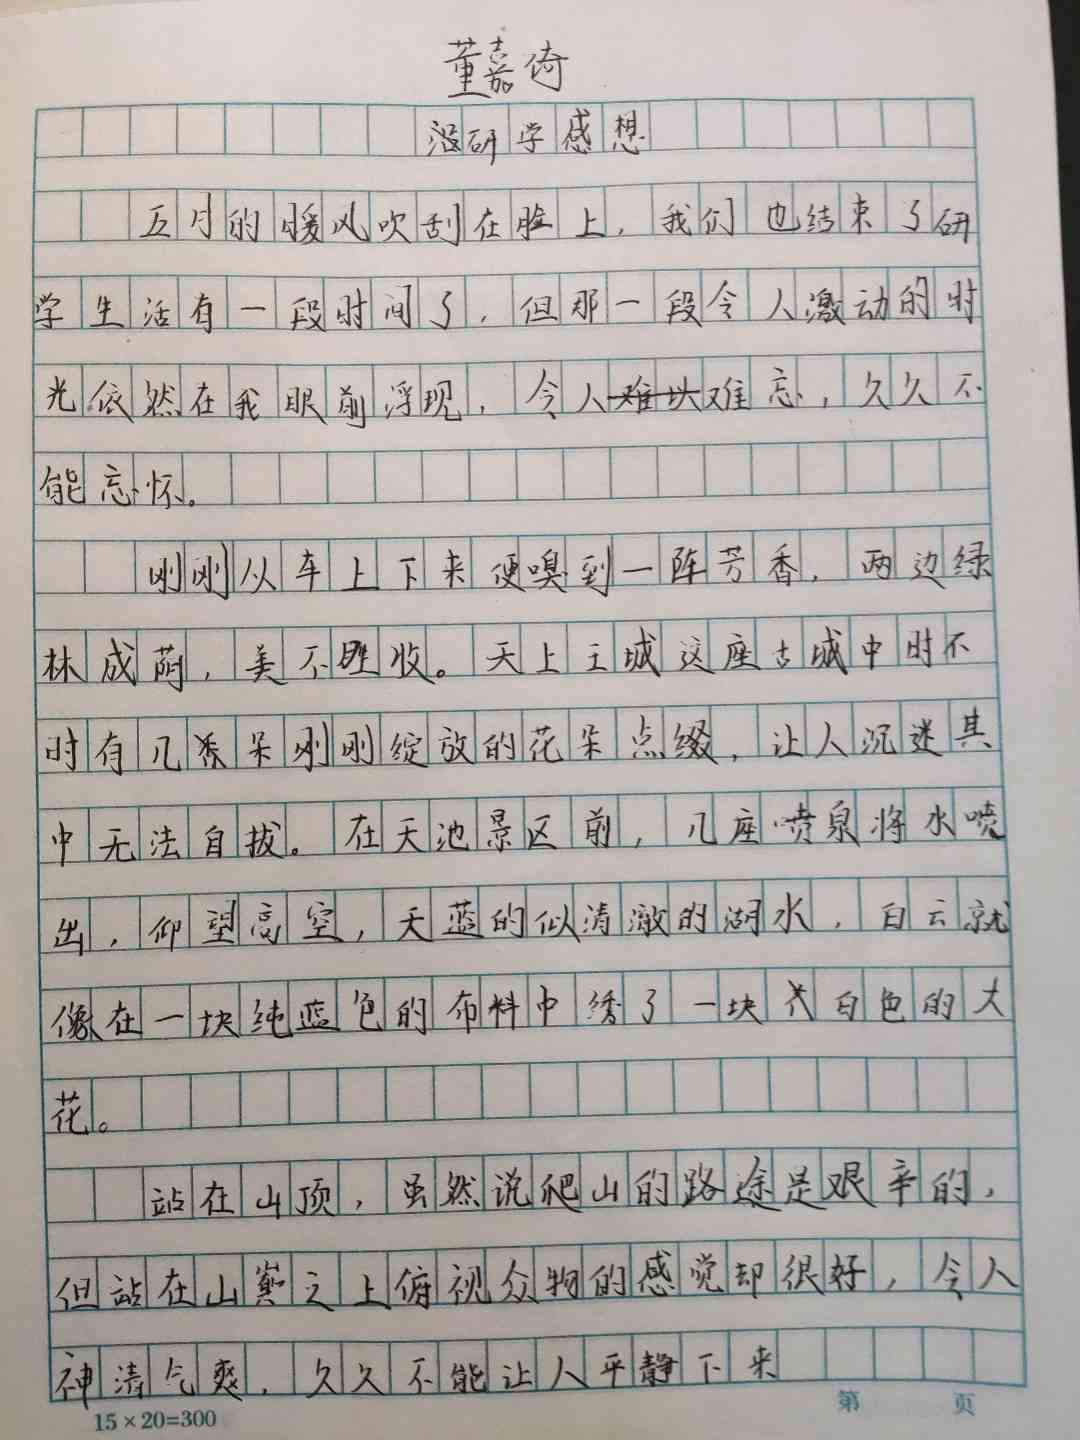 董嘉倚
研学感想
五月的暖风吹刮在脸上，我们也结束了研
学生活有一段时间了，但那一段令人激动的时
光依然在我眼前浮现，令人难忘，久久不
能忘怀。
刚刚从车上下来便嗅到一阵芳香，两边绿
林成荫，美不胜收。天上王城这座古城中时不
时有几朵刚刚绽放的花朵点缀，让人沉迷其
中无法自拔。在天池景区前，几座喷泉将水喷
出，仰望高空，天蓝的似清澈的湖水，白云就
像在一块纯蓝色的布料中绣了一块大白色的大
花。
站在山顶，虽然说爬山的路途是艰辛的，
但站在山之上俯视众物的感觉却很好，令人
神清气爽，久久不能让人平静下来
15×20=300
第 页